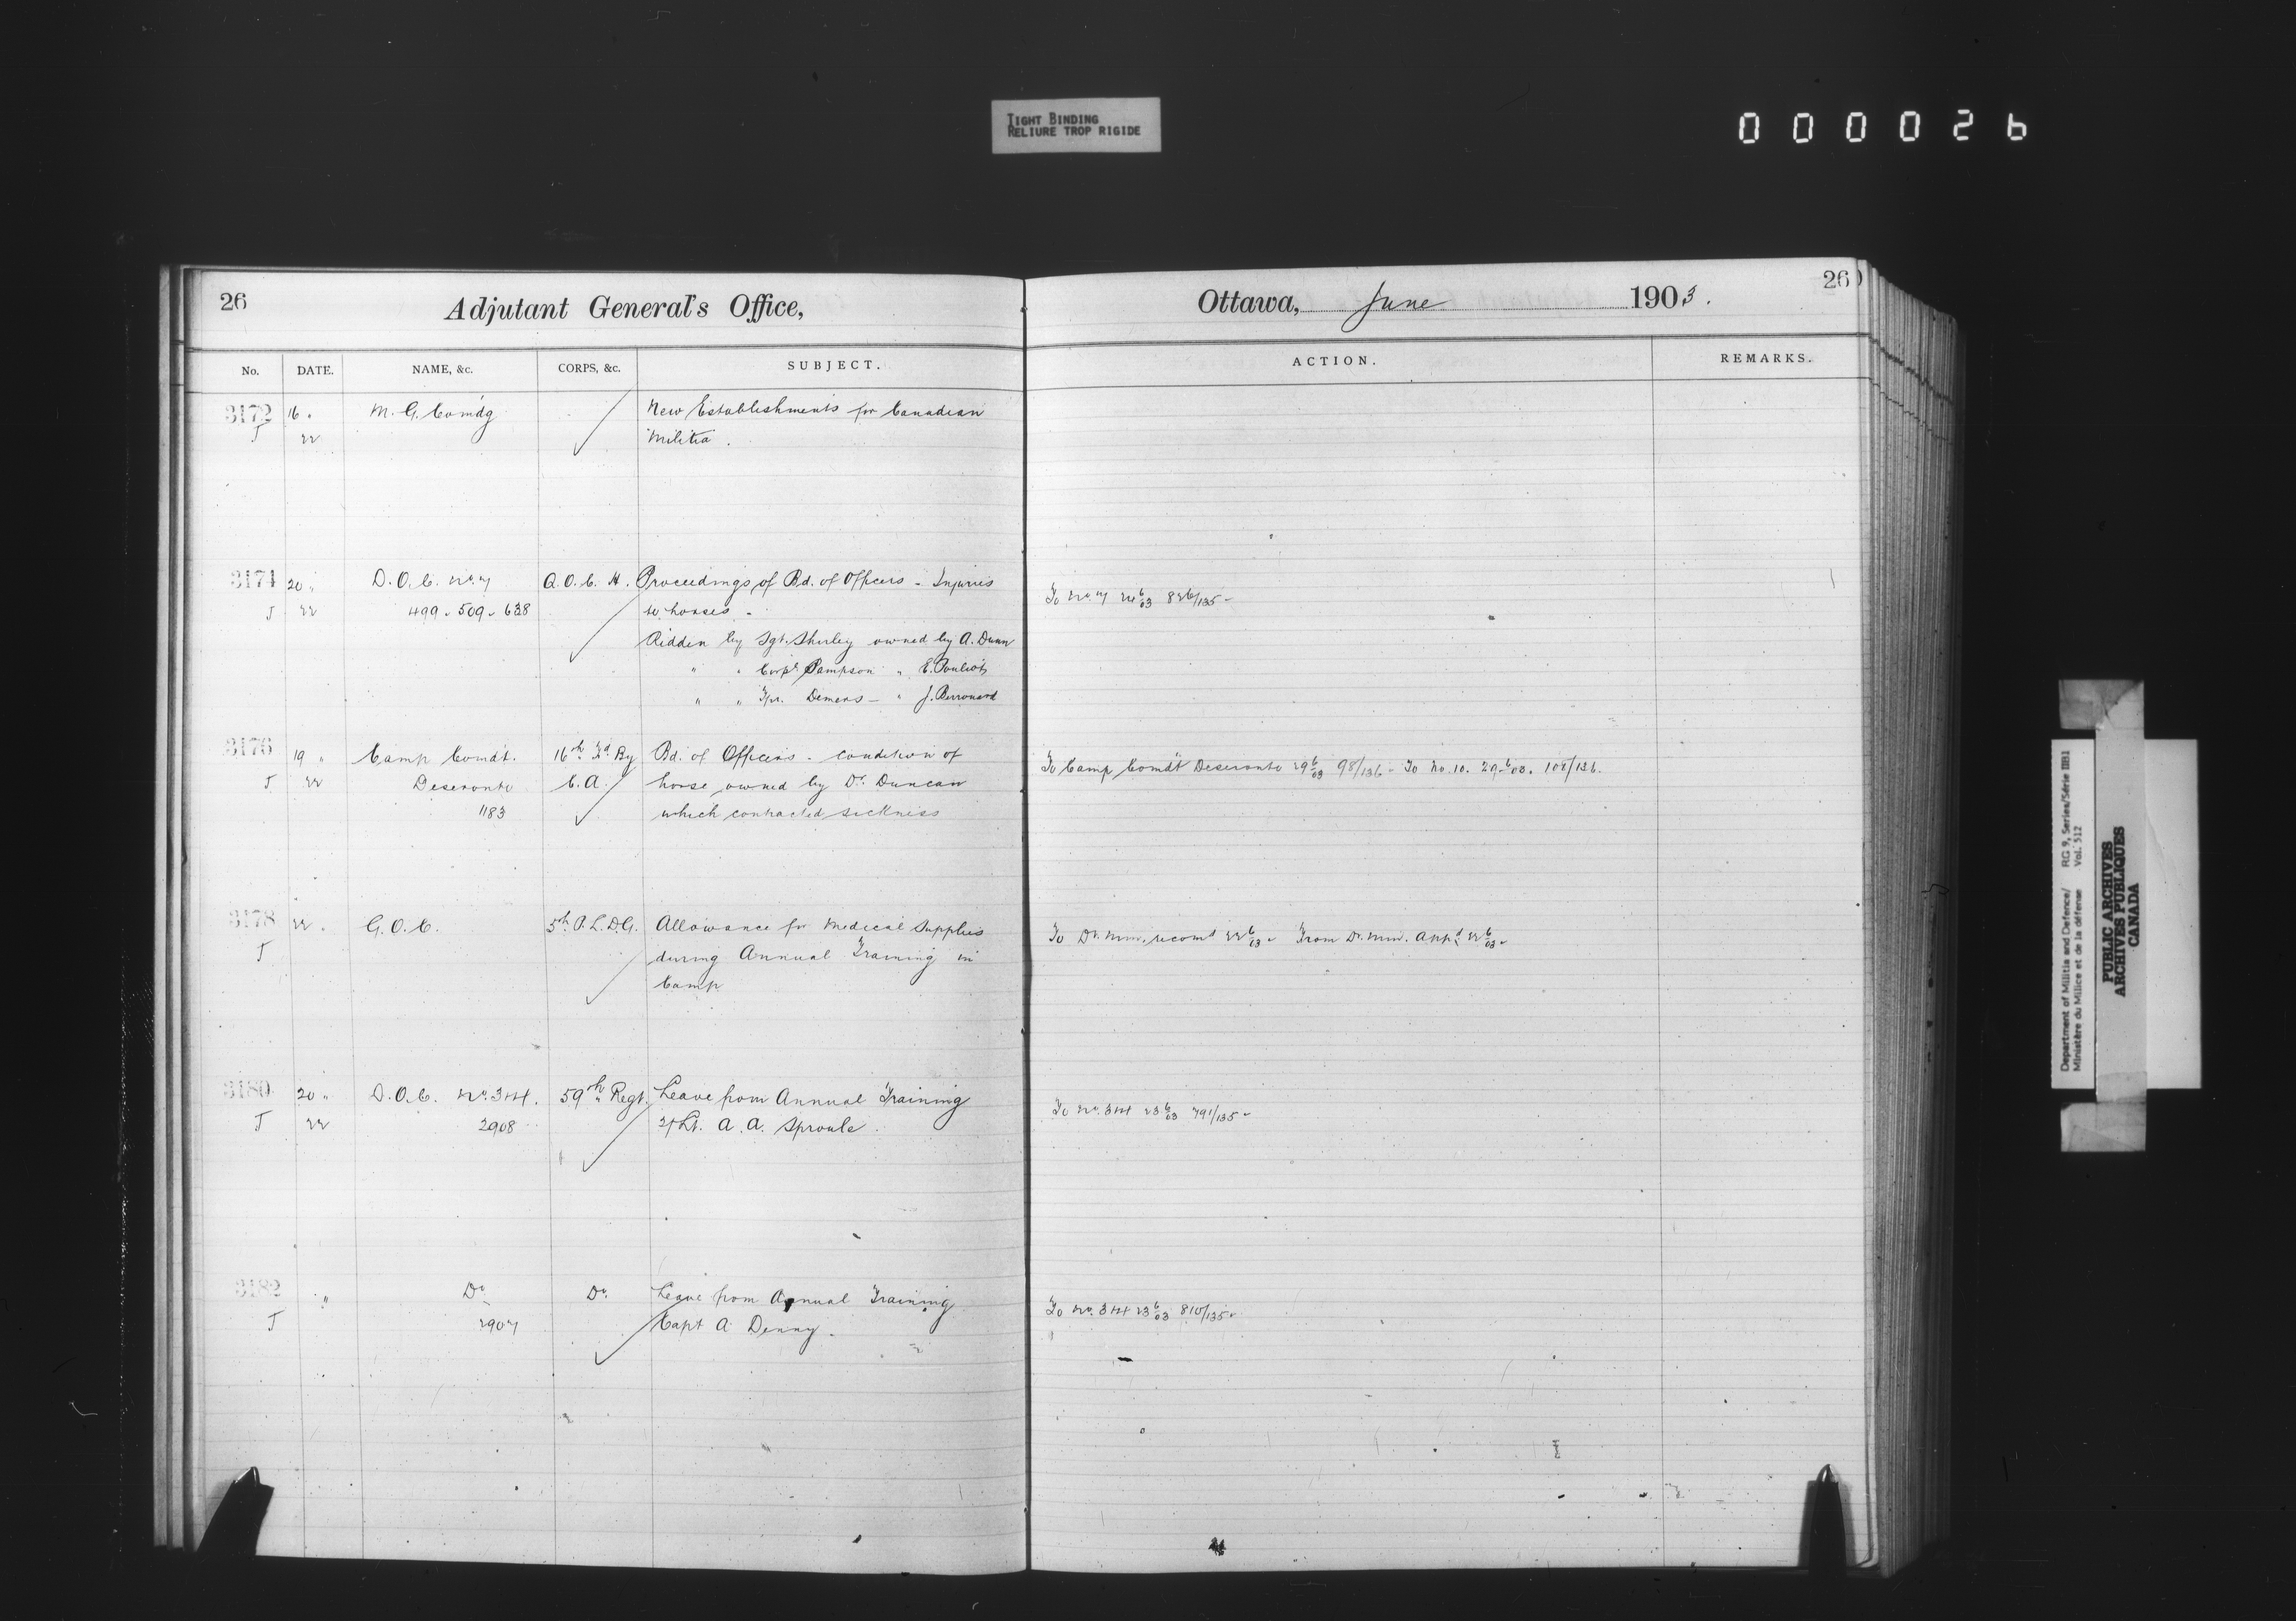 TIGHT BINDING
RELIURE TROP RIGIDE
000026
26
Adjutant General's Office,
Ottawa, June 1903.
26
No. DATE. NAME, &c. CORPS, &c. SUBJECT. ACTION. REMARKS.
3172 16 " M. G. Comdg New Establishments for Canadian
J 22 Militia.
3174 20 " D.O.C. No. 7 Q.O.C.H. Proceedings of Bd. of Officers - Injuries
J 22 499-509-638 to horses - To No. 7 6/03 826/135-
Ridden by Sgt. Shirley owned by A. Dunn
" " Corpl. Sampson " E. Pouliot
" " Tpr. Demers - " J.
3176 19 " Camp Comdt. 16th Fd By Bd. of Officers - condition of
J 22 Deseronto C.A. horse owned by Dr. Duncan To Camp Comdt Deseronto 29 6/03 98/136 - To No. 10. 29-6/03. 108/136.
1183 which contracted sickness
3178 22 " G.O.C. 5th P.L.D.G. Allowance for Medical Supplies To Dr. Min. recomd 22 6/03 - From Dr. Min. appd 22 6/03-
J during Annual Training in
Camp
3180 20 " D.O.C. No. 3&4. 59th Regt. Leave from Annual Training
J 22 2908 2/Lt. A. A. Sproule. To No. 3&4 23 6/03 791/135-
3182 " Do Do. Leave from Annual Training
J 2907 Capt A. Denny. To No. 3&4 23 6/03 810/135-
Department of Militia and Defence/ RG 9, Series/Série IIB1
Ministère du Milice et de la défense Vol. 512
PUBLIC ARCHIVES
ARCHIVES PUBLIQUES
CANADA